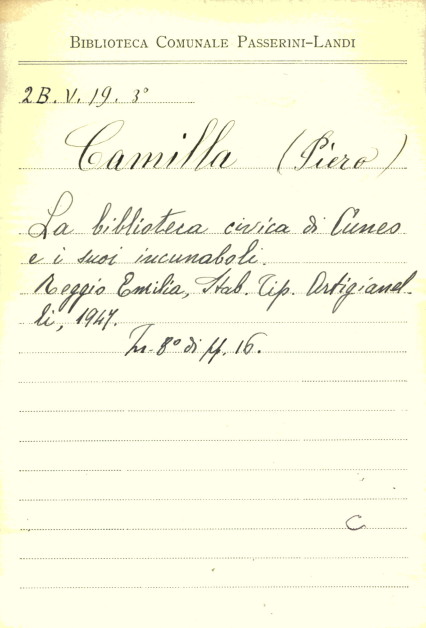 BIBLIOTECA COMUNALE PASSERINI-LANDI
2B. V. 19. 3°
Camilla (Piero)
La biblioteca civica di Cuneo
e i suoi incunaboli.
Reggio Emilia, Stab. Tip. Artigianel-
li, 1947.
In-8° di pp. 16.
C